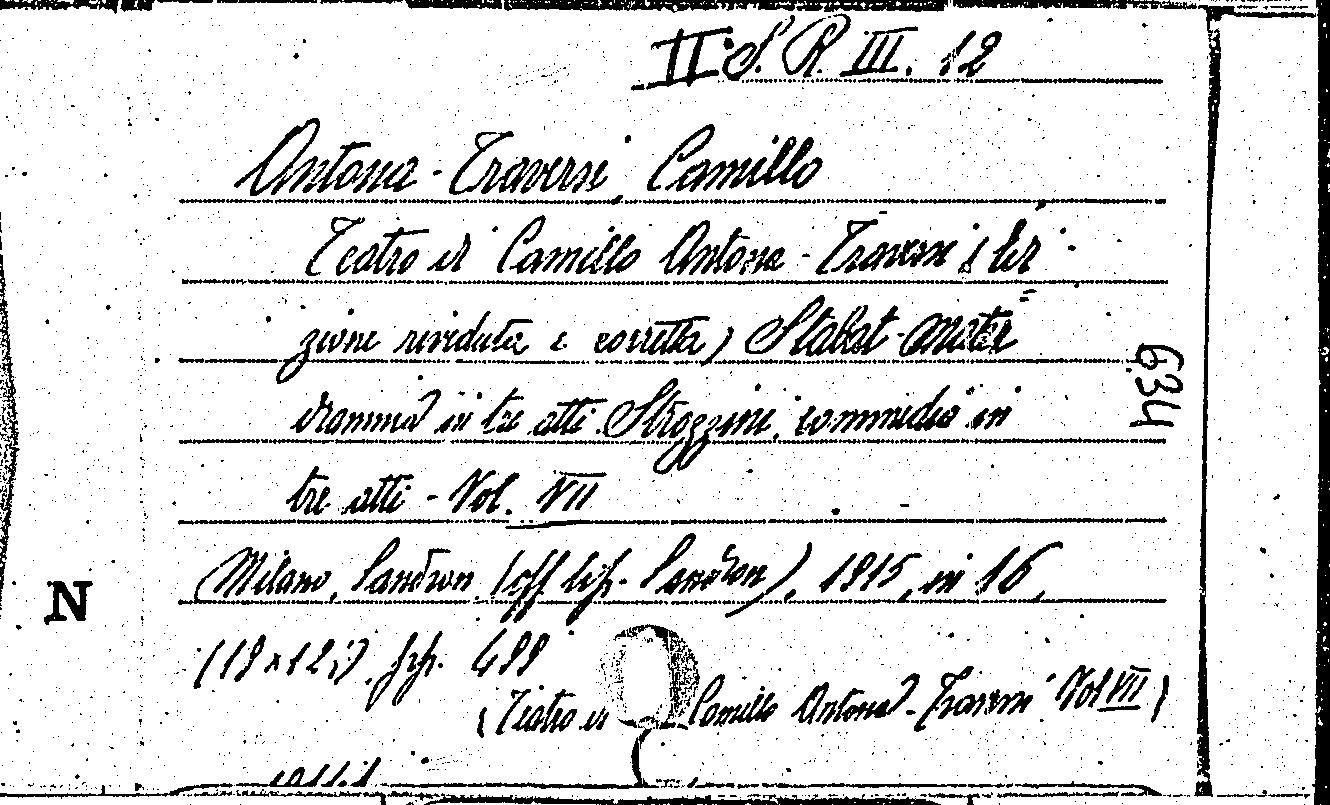 II. S. R. III. 12
Antona-Traversi, Camillo
Teatro di Camillo Antona-Traversi (
zione riveduta e corretta) Stabat-Mater
dramma in tre atti. Strozzini, commedia in
tre atti - Vol. VII
634
Milano, Sandron (off tip. Sandron), 1915, in 16,
N
(19x12), pp. 499
(Teatro di Camillo Antona-Traversi Vol VII)